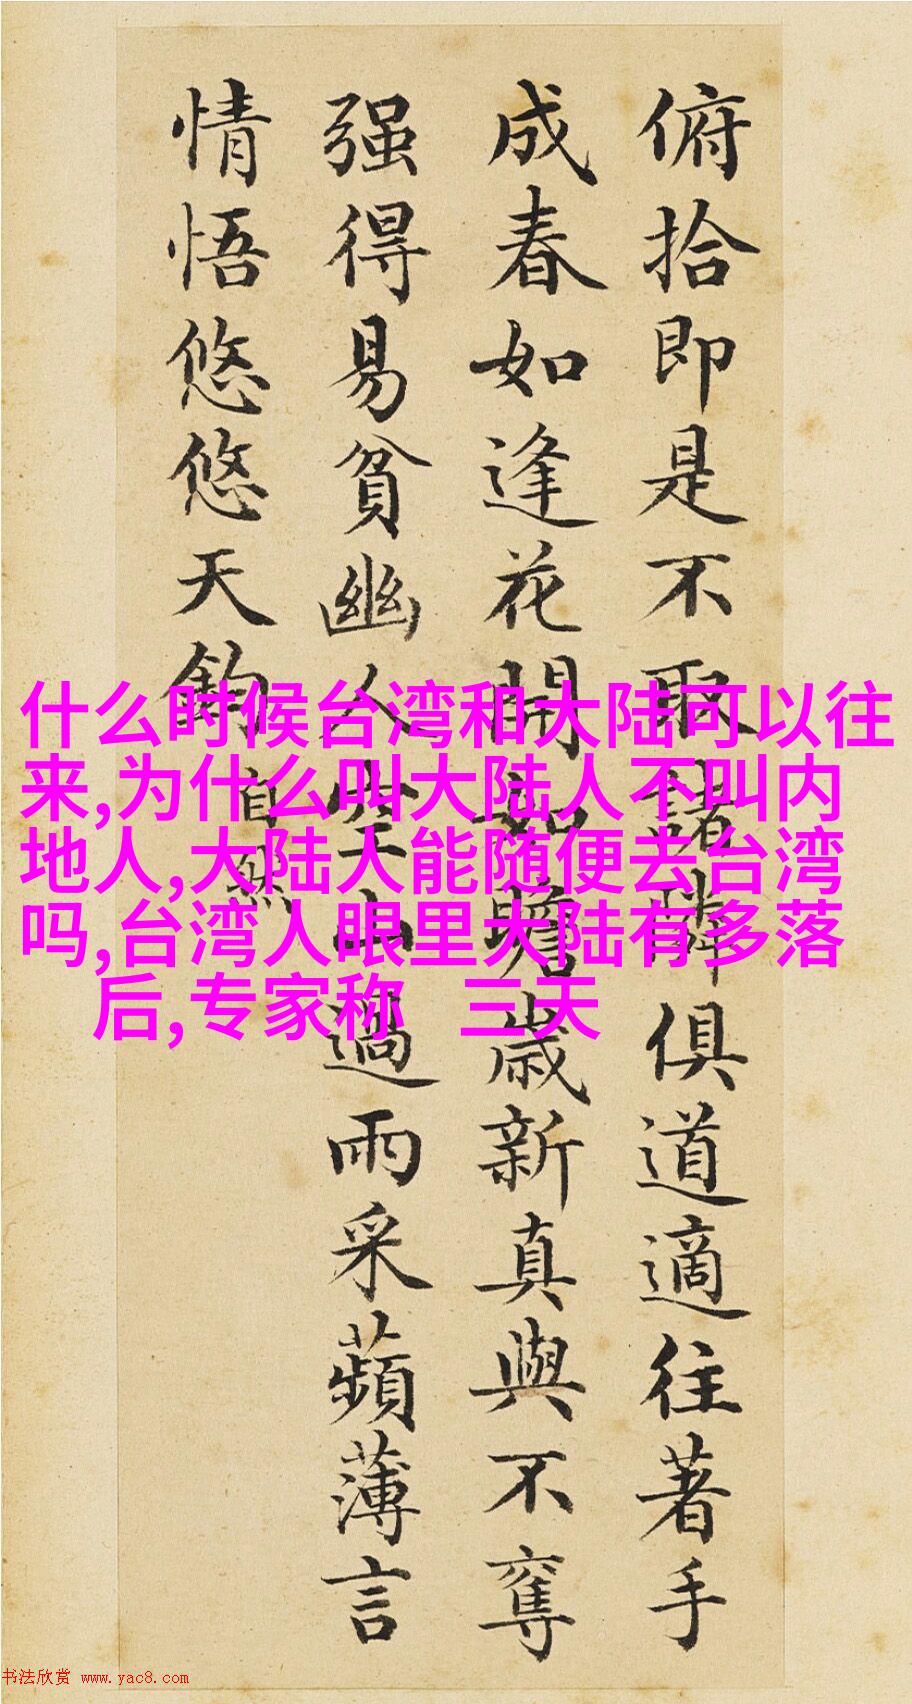 俯拾即是不取諸隣俱道適往著手
成春如逢花開如瞻歲新真與不奪
强得易貧幽人空山過雨采蘋薄言
情悟悠悠天鈞
自然
什么时候台湾和大陆可以往
来,为什么叫大陆人不叫内
地人,大陆人能随便去台湾
吗,台湾人眼里大陆有多落
后,专家称 三天
书法欣赏 www.yac8.com